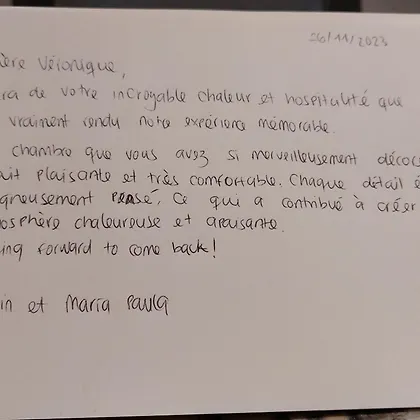 26/11/2023
ère Véronique,
ra de votre incroyable chaleur et hospitalité que
vraiment rendu notre expérience mémorable.
chambre que vous avez si merveilleusement décoré
uit plaisante et très comfortable. Chaque détail é
gneusement pensé, ce qui a contribué à créer
osphère chaleureuse et apaisante.
ing forward to come back!
in et Maria Paula